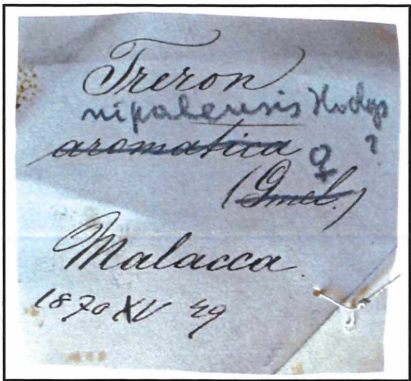 Treron
nipalensis Hodgs
aromatica ♀ ?
(Gmel.)
Malacca.
1870 XV 49